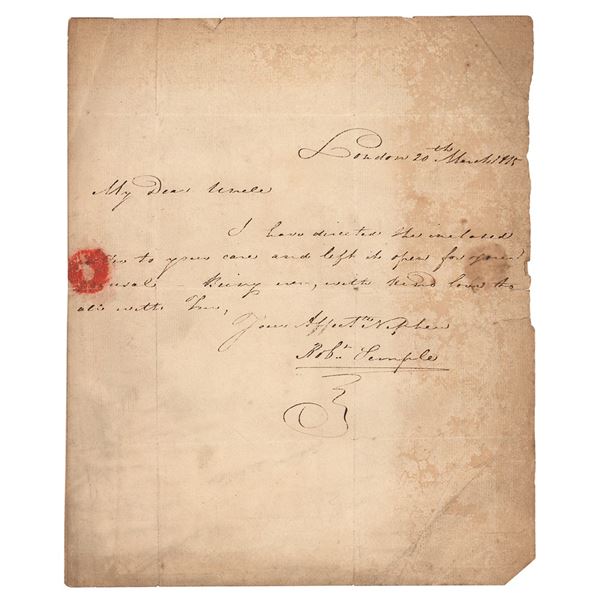 London 20th March 1815
My Dear Uncle
I have directed the inclosed
to your care and left it open for your
perusal - Being ever, with kind love to
all with You,
Your Affectte Nephew
Robt Semple